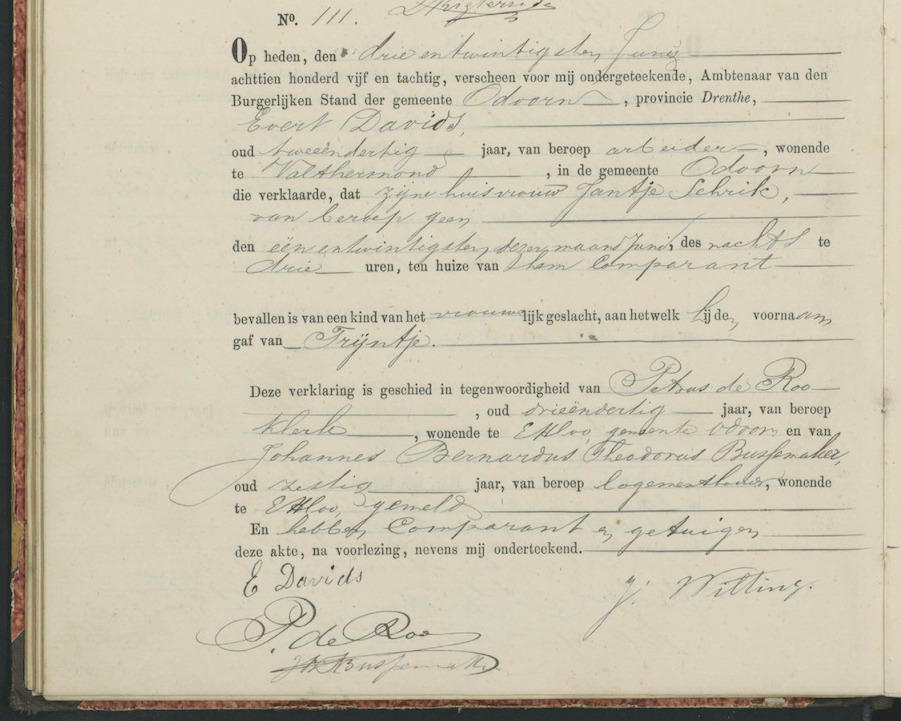 Nº. 111.
Op heden, den drie entwintigsten Junij
achttien honderd vijf en tachtig, verscheen voor mij ondergeteekende, Ambtenaar van den
Burgerlijken Stand der gemeente Odoorn, provincie Drenthe,
Evert Davids,
oud tweeëndertig jaar, van beroep arbeider, wonende
te Valthermond, in de gemeente Odoorn
die verklaarde, dat zijne huisvrouw Jantje Schrik,
van beroep geen
den één entwintigsten dezer maand Junij, des nachts te
drie uren, ten huize van hem Comparant
bevallen is van een kind van het vrouwelijk geslacht, aan hetwelk hij den voornaam
gaf van Trijntje.
Deze verklaring is geschied in tegenwoordigheid van Petrus de Roo
, oud drieëndertig jaar, van beroep
klerk, wonende te Exloo gemeente Odoorn en van
Johannes Bernardus Theodorus Bussemaker,
oud zestig jaar, van beroep logementhouder, wonende
te Exloo, gemeld
En hebben Comparant en getuigen
deze akte, na voorlezing, nevens mij onderteekend.
E Davids
J. Wilting.
P. de Roo
Bussemaker